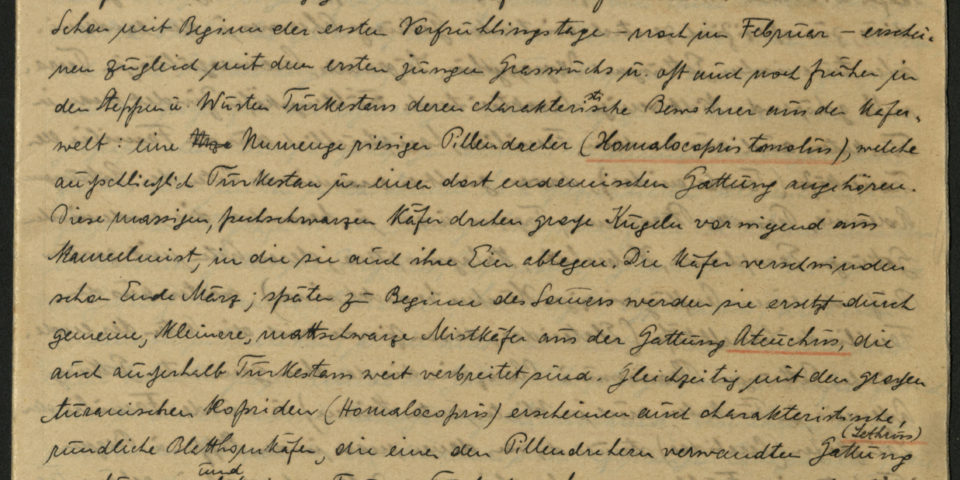 Schon mit Beginn der ersten Vorfrühlingstage – noch im Februar – erschei-
nen zugleich mit dem ersten jungen Graswuchs u. oft auch noch früher in
den Steppen u. Wüsten Turkestans deren charakteristische Bewohner aus der Käfer-
welt: eine Unmenge riesiger Pillendreher (Homalocopris tmolus), welche
ausschließlich Turkestan u. einer dort endemischen Gattung angehören.
Diese massigen, pechschwarzen Käfer drehen große Kugeln vorwiegend aus
Kameelmist, in die sie auch ihre Eier ablegen. Die Käfer verschwinden
schon Ende März; später zu Beginn des Sommers werden sie ersetzt durch
gemeine, kleinere, mattschwarze Mistkäfer aus der Gattung Ateuchus, die
auch außerhalb Turkestans weit verbreitet sind. Gleichzeitig mit den großen
turanischen Kopriden (Homalocopris) erscheinen auch charakteristische,
(Lethrus)
rundliche Blatthornkäfer, die einer den Pillendrehern verwandten Gattung
und